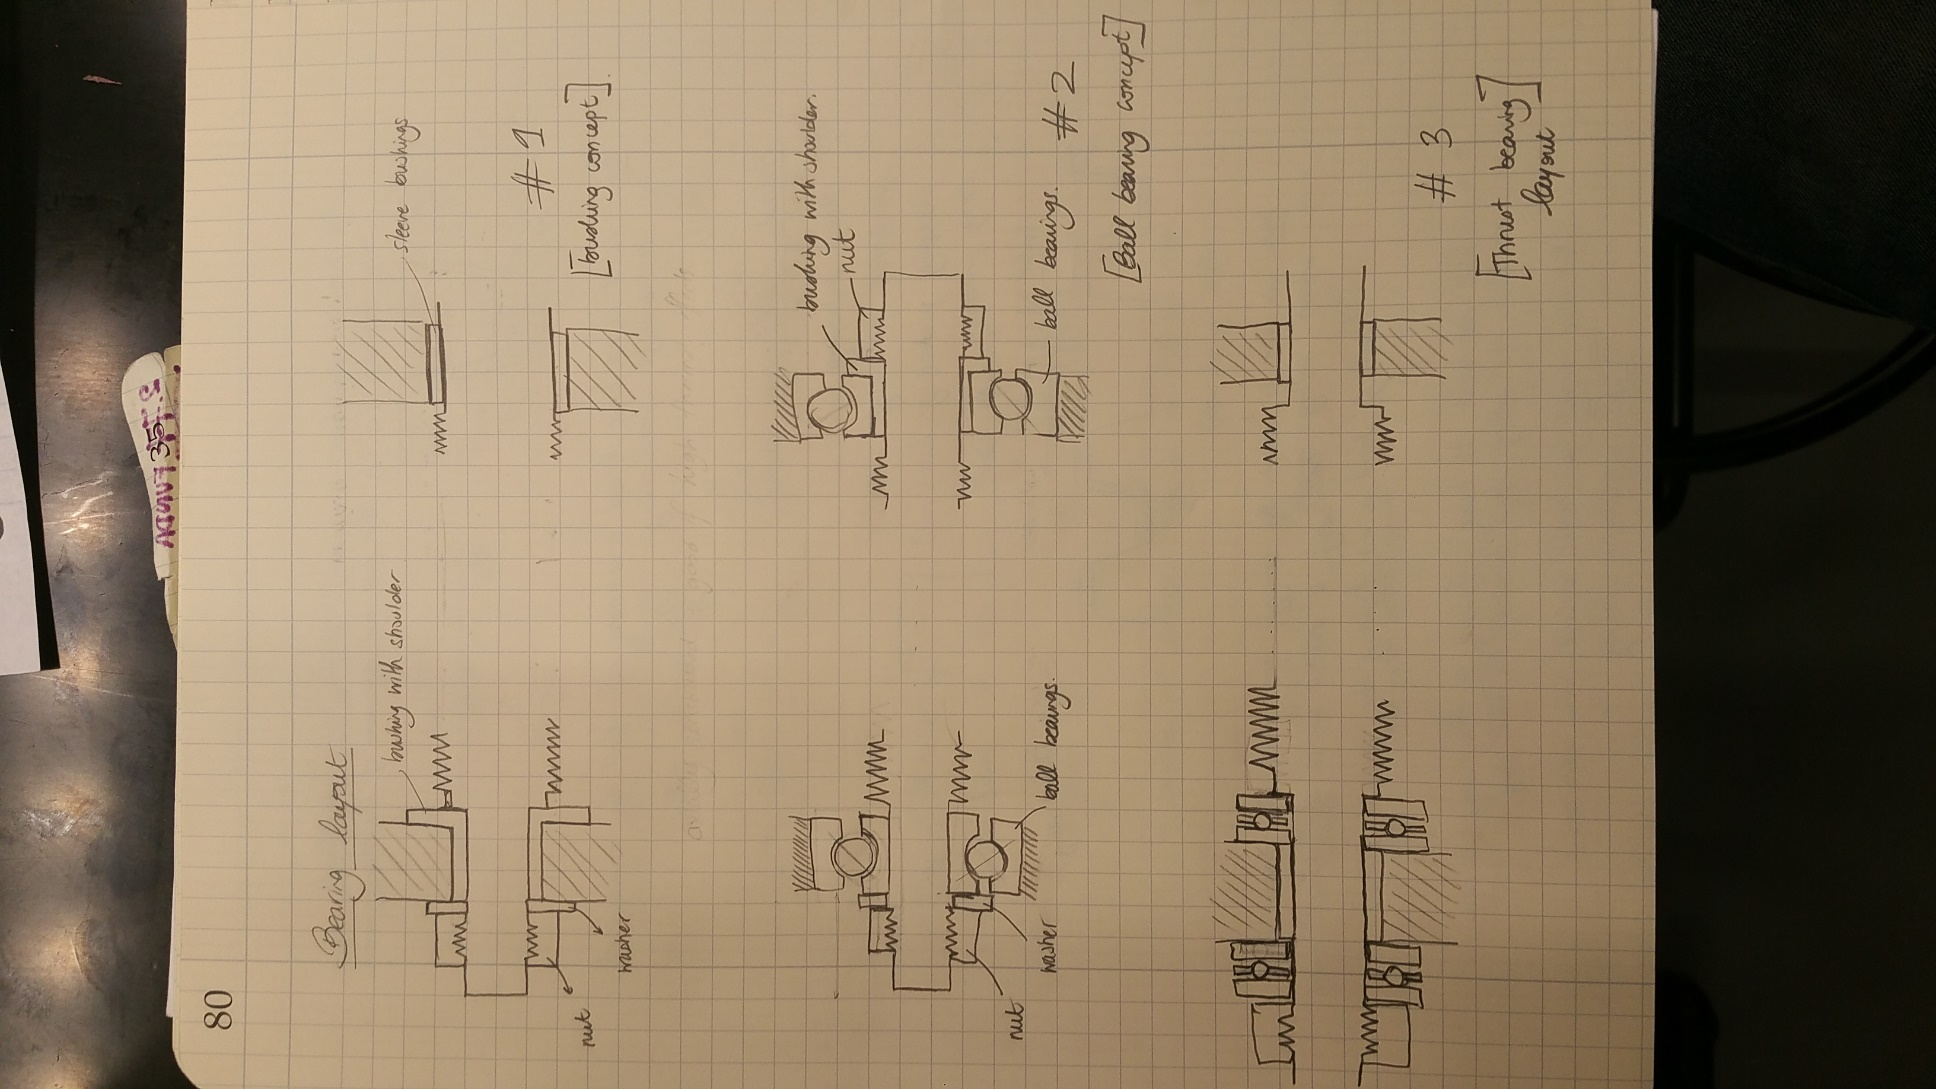 80
Bearing layout
bushing with shoulder
sleeve bushings
nut
washer
# 1
[bushing concept].
bushing with shoulder.
nut
ball bearings.
nut
washer
ball bearings.
# 2
[Ball bearing concept]
# 3
[Thrust bearing]
layout